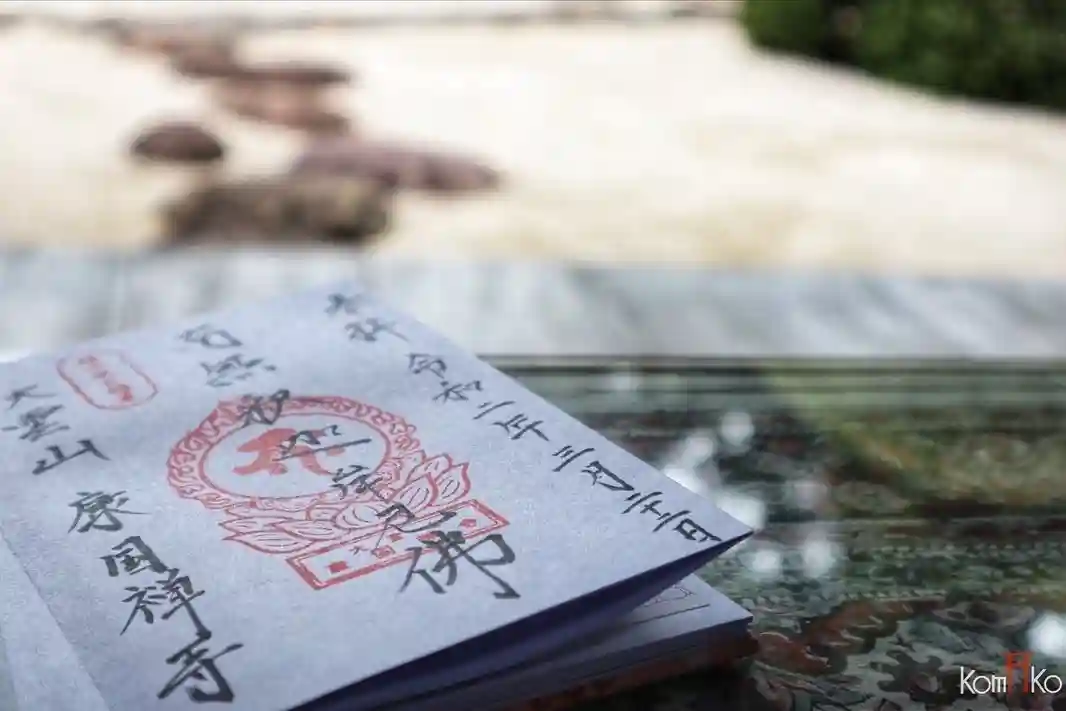 奉拝 令和二年三月二十二日
南無釈迦牟尼佛
大雲山 康国禅寺
KomAKo